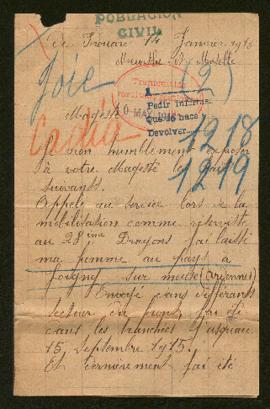 POBLACION
CIVIL
De Frouard 14 Janvier 191
Meurthe et Moselle
Joie
Transmitido
1
Pedir informe.
Qué se hace
Devolver
MAY 191
Majesté
1218
1219
humblement exposer
à votre Majesté le
suivants.
Appelé au service lors de la
mobilisation comme réserviste
au 28ème Dragons j'ai laissé
ma femme au pays à
Joigny sur meuse (Ardennes)
Envoyé dans différents
secteur du front j'ai
dans les tranchées jusqu'au
15 septembre 1915.
Et dernièrement j'ai été